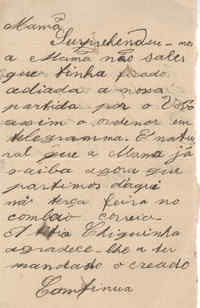 Mamã
Surprehendeu-nos
a Mamã não saber
que tinha ficado
adiada a nossa
partida por o Vôvô
assim o ordenar em
telegramma. E natu
ral que a Mama já
saiba agora que
partimos daqui
na terça feira no
comboio correio
A tia Chiquinha
agradece-lhe a ter
mandado o creado
Continua